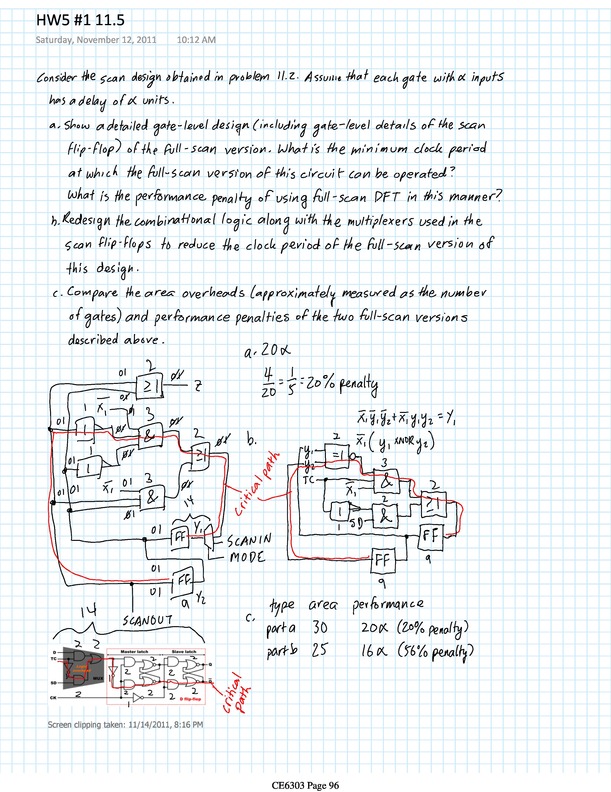 HW5 #1 11.5
Saturday, November 12, 2011 10:12 AM
Consider the scan design obtained in problem 11.2. Assume that each gate with α inputs
has a delay of α units.
a. Show a detailed gate-level design (including gate-level details of the scan
flip-flop) of the full-scan version. What is the minimum clock period
at which the full-scan version of this circuit can be operated?
What is the performance penalty of using full-scan DFT in this manner?
b. Redesign the combinational logic along with the multiplexers used in the
scan flip-flops to reduce the clock period of the full-scan version of
this design.
c. Compare the area overheads (approximately measured as the number
of gates) and performance penalties of the two full-scan versions
described above.
a. 20α
4/20 = 1/5 = 20% penalty
x̅₁y̅₁y̅₂ + x̅₁y₁y₂ = Y₁
x̅₁(y₁ XNOR y₂)
b.
2
01
≥1
z
x̅₁
1
3
&
2
≥1
1
01
01 01
x̅₁ 01
3
&
01
14
FF
Y₁
SCANIN
MODE
01
01
FF
9
Y₂
SCANOUT
critical path
y₁
y₂
TC
2
=1
3
&
x̅₁
1
1
SD
2
&
2
≥1
FF
9
FF
9
c. type area performance
part a 30 20α (20% penalty)
part b 25 16α (56% penalty)
14
2 2
D
TC
SD
CK
MUX
Master latch
Slave latch
2
2
2
2
2
1
Q
D flip-flop
critical path
Screen clipping taken: 11/14/2011, 8:16 PM
CE6303 Page 96